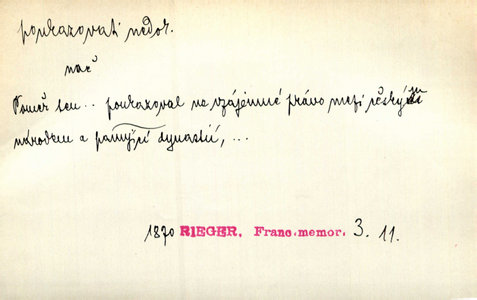 poukazovati nedok.
nač
Poměr ten.. poukazoval na vzájemné právo mezi českým
národem a panující dynastií, ...
1870 RIEGER, Franc.memor. 3. 11.